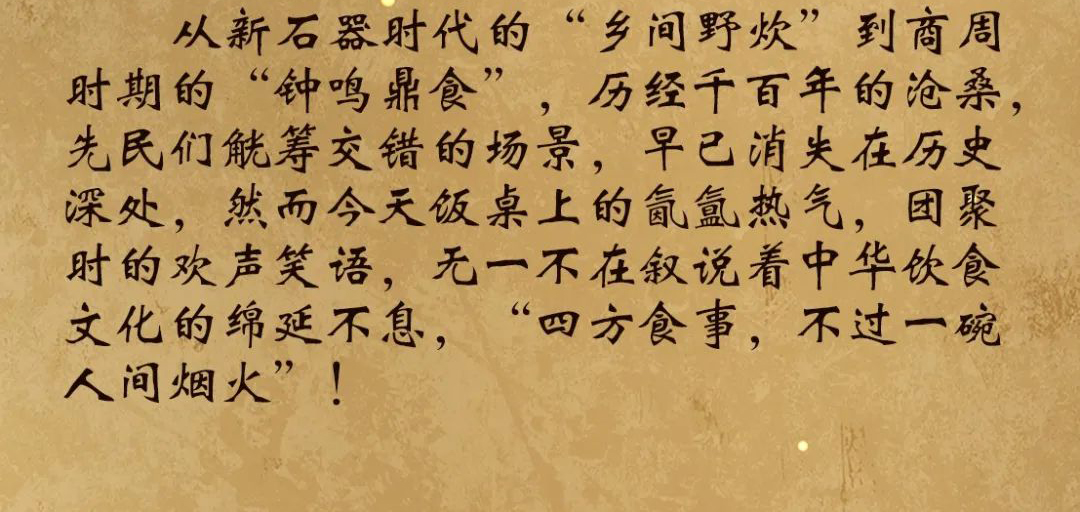 从新石器时代的“乡间野炊”到商周
时期的“钟鸣鼎食”，历经千百年的沧桑，
先民们觥筹交错的场景，早已消失在历史
深处，然而今天饭桌上的氤氲热气，团聚
时的欢声笑语，无一不在叙说着中华饮食
文化的绵延不息，“四方食事，不过一碗
人间烟火”！